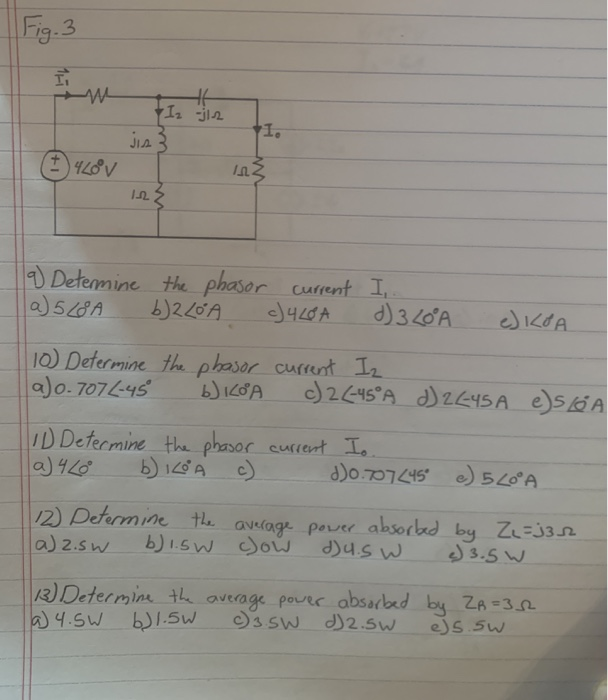 Fig. 3
I₁
I₂ -j1Ω
I₀
j1Ω
4∠0°V
1Ω
1Ω
9) Determine the phasor current I₁
a) 5∠0°A b) 2∠0°A c) 4∠0°A d) 3∠0°A e) 1∠0°A
10) Determine the phasor current I₂
a) 0.707∠-45° b) 1∠0°A c) 2∠-45°A d) 2∠-45A e) 5∠0°A
11) Determine the phasor current I₀
a) 4∠0° b) 1∠0°A c) d) 0.707∠45° e) 5∠0°A
12) Determine the average power absorbed by Z_L=j3Ω
a) 2.5W b) 1.5W c) 0W d) 4.5 W e) 3.5 W
13) Determine the average power absorbed by Z_R=3Ω
a) 4.5W b) 1.5W c) 3.5W d) 2.5W e) 5.5W